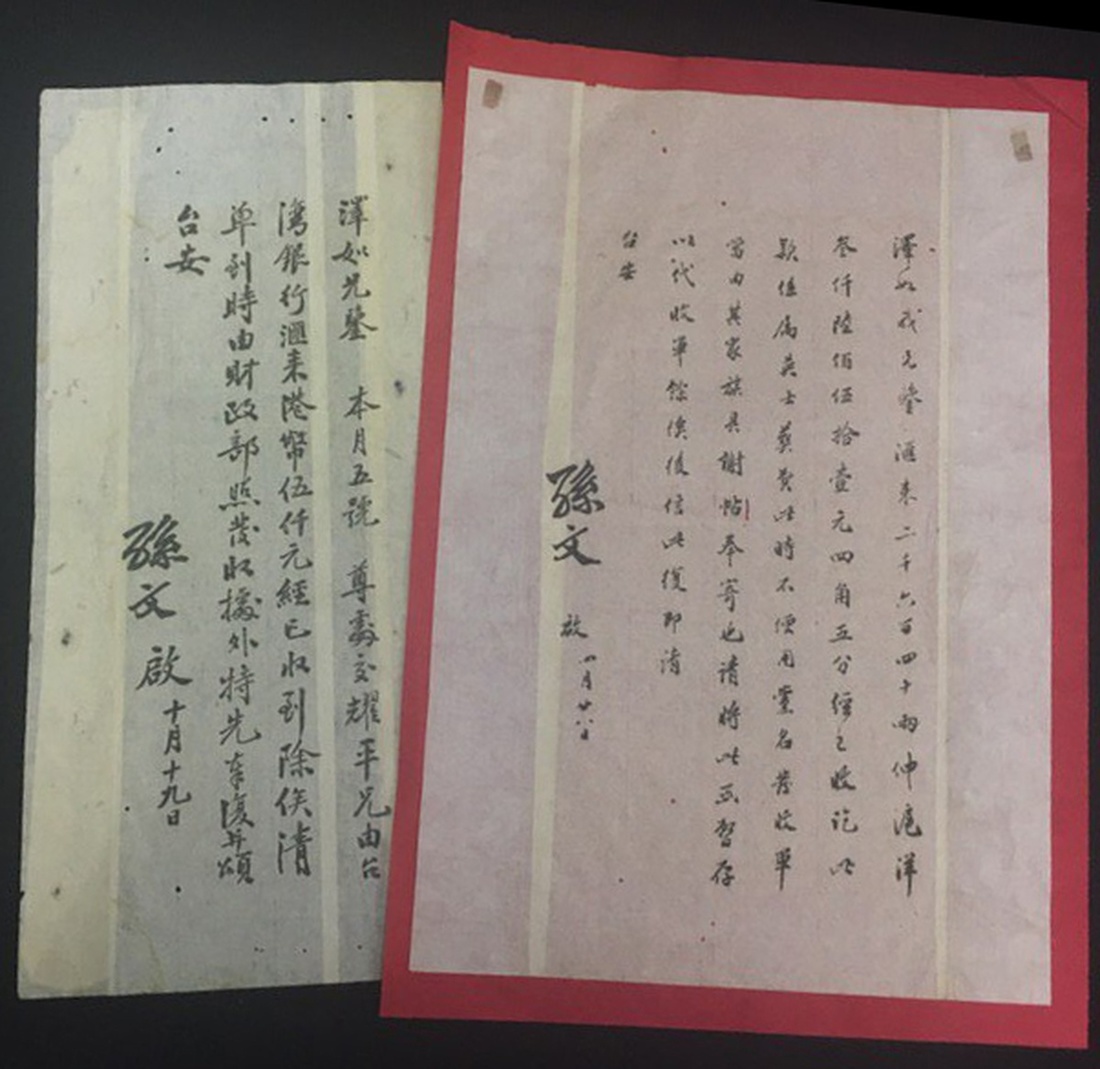 澤如我兄鑒 滙来二千六百四十兩伸滬洋
叁仟陸佰伍拾壹元四角五分經已收訖此
款係為英士葬費此時不便用黨名發收單
當由其家族具謝帖奉寄也請將此函暫存
以代收單餘俟後信此復即請
台安
孫文 啟 四月廿八日
澤如兄鑒 本月五號 尊處交耀平兄由台
灣銀行滙来港幣伍仟元經已收到除俟清
單到時由財政部照發收據外特先奉復并頌
台安
孫文 啟 十月十九日